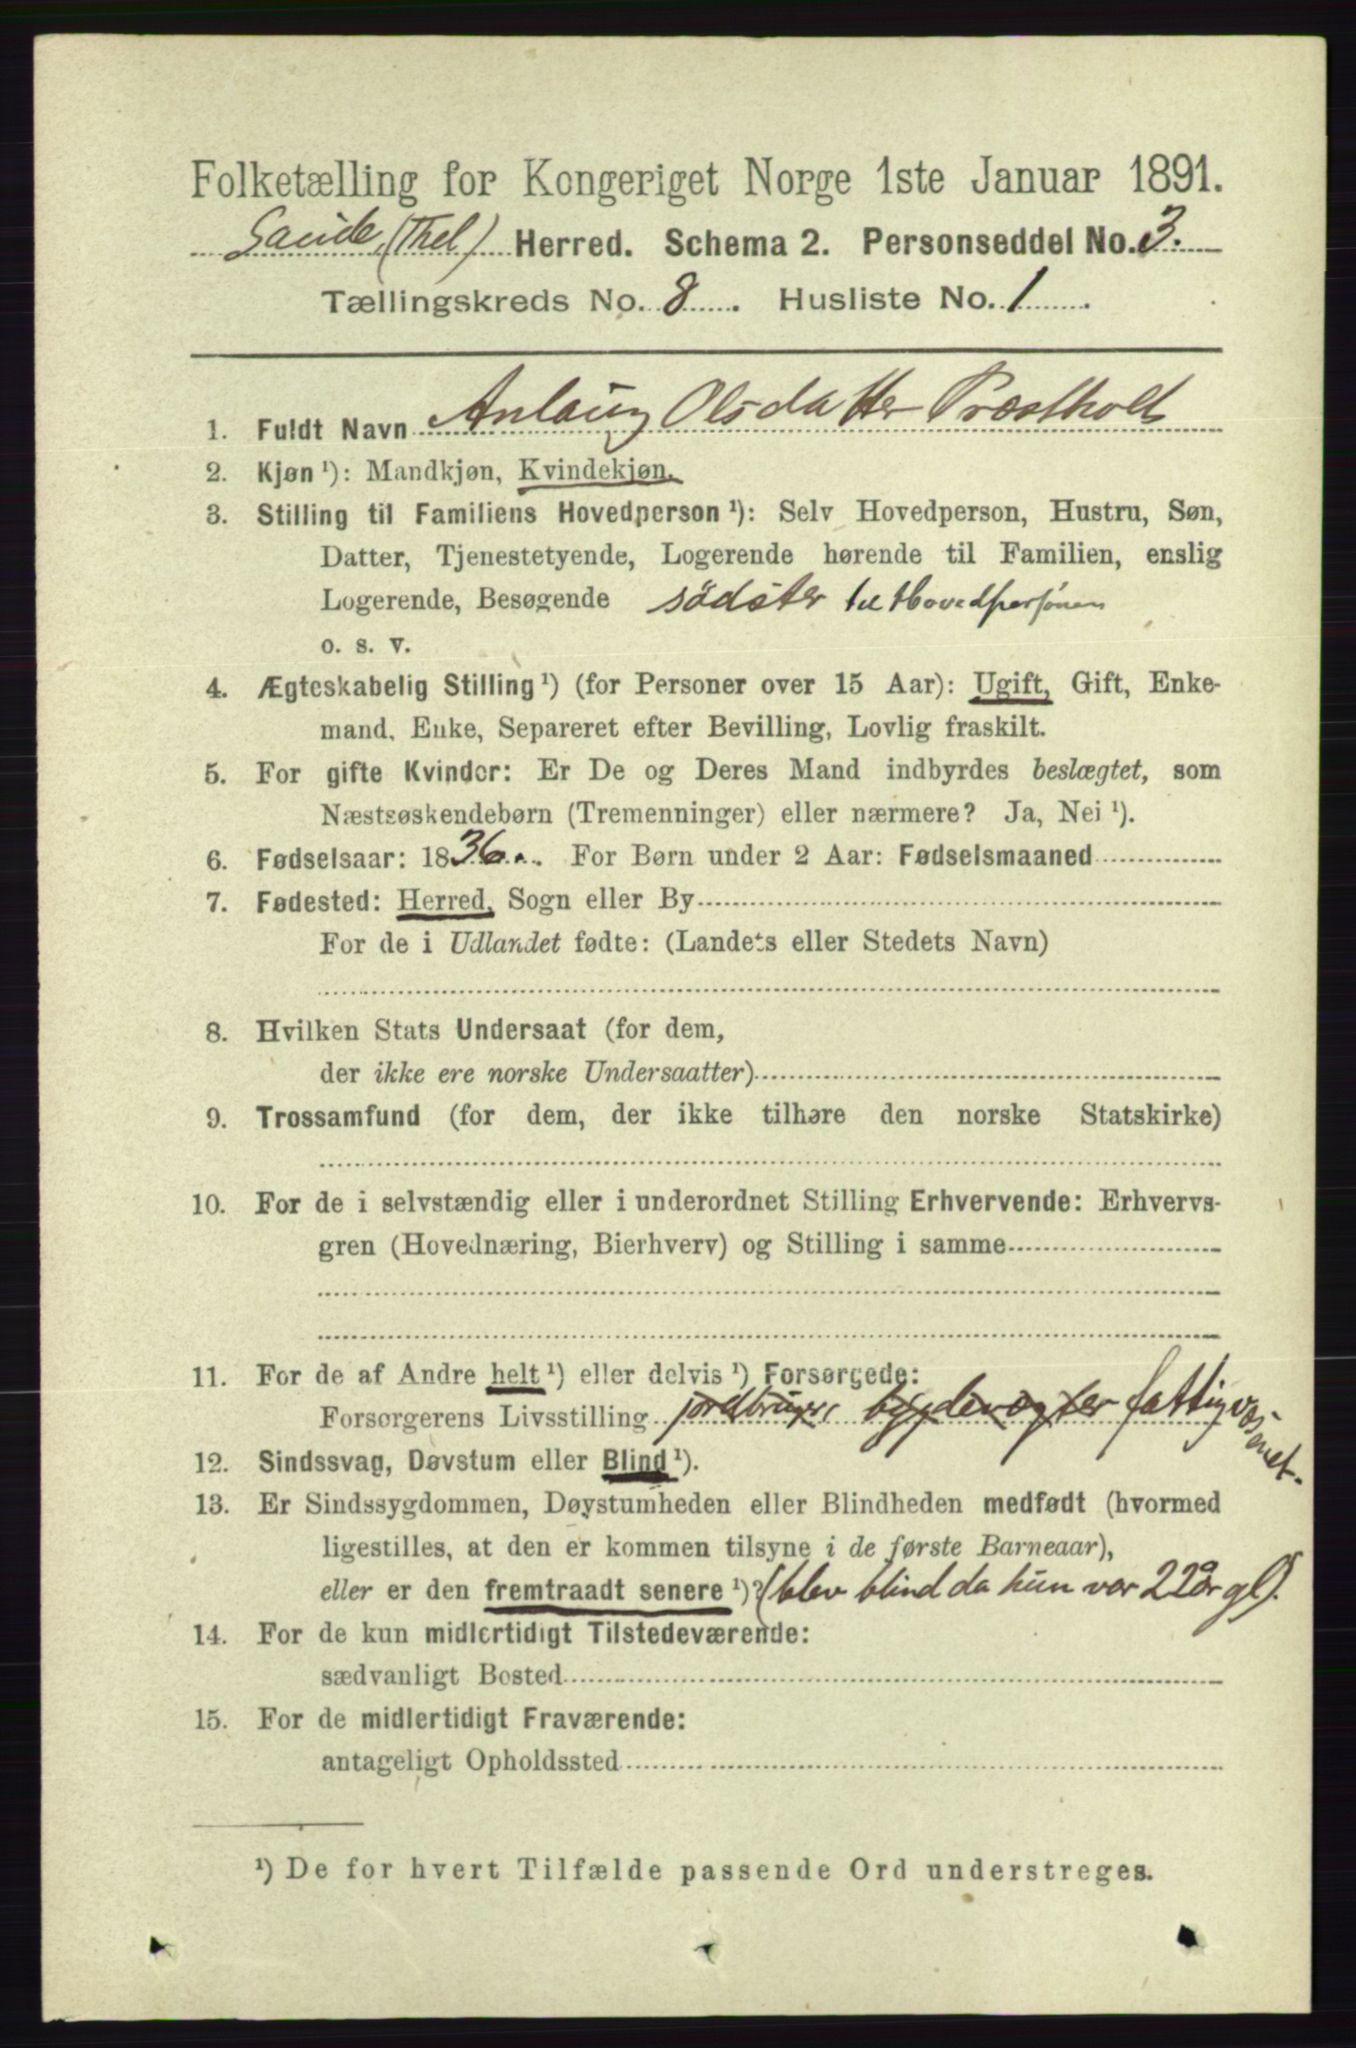 Folketælling for Kongeriget Norge 1ste Januar 1891.
Saude (Thel) Herred. Schema 2. Personseddel No. 3.
Tællingskreds No. 8. Husliste No. 1.
1. Fuldt Navn Anlaug Olsdatter Præstholt
2. Kjøn ¹): Mandkjøn, Kvindekjøn.
3. Stilling til Familiens Hovedperson ¹): Selv Hovedperson, Hustru, Søn,
Datter, Tjenestetyende, Logerende hørende til Familien, enslig
Logerende, Besøgende södster til Hovedpersonen
o. s. v.
4. Ægteskabelig Stilling ¹) (for Personer over 15 Aar): Ugift, Gift, Enke-
mand, Enke, Separeret efter Bevilling, Lovlig fraskilt.
5. For gifte Kvinder: Er De og Deres Mand indbyrdes beslægtet, som
Næstsøskendebørn (Tremenninger) eller nærmere? Ja, Nei ¹).
6. Fødselsaar: 1836. For Børn under 2 Aar: Fødselsmaaned
7. Fødested: Herred, Sogn eller By
For de i Udlandet fødte: (Landets eller Stedets Navn)
8. Hvilken Stats Undersaat (for dem,
der ikke ere norske Undersaatter)
9. Trossamfund (for dem, der ikke tilhøre den norske Statskirke)
10. For de i selvstændig eller i underordnet Stilling Erhvervende: Erhvervs-
gren (Hovednæring, Bierhverv) og Stilling i samme
11. For de af Andre helt ¹) eller delvis ¹) Forsørgede:
Forsørgerens Livsstilling fattigvæsenet.
12. Sindssvag, Døvstum eller Blind ¹).
13. Er Sindssygdommen, Døvstumheden eller Blindheden medfødt (hvormed
ligestilles, at den er kommen tilsyne i de første Barneaar),
eller er den fremtraadt senere ¹)? (blev blind da hun var 22 år gl).
14. For de kun midlertidigt Tilstedeværende:
sædvanligt Bosted
15. For de midlertidigt Fraværende:
antageligt Opholdssted
¹) De for hvert Tilfælde passende Ord understreges.